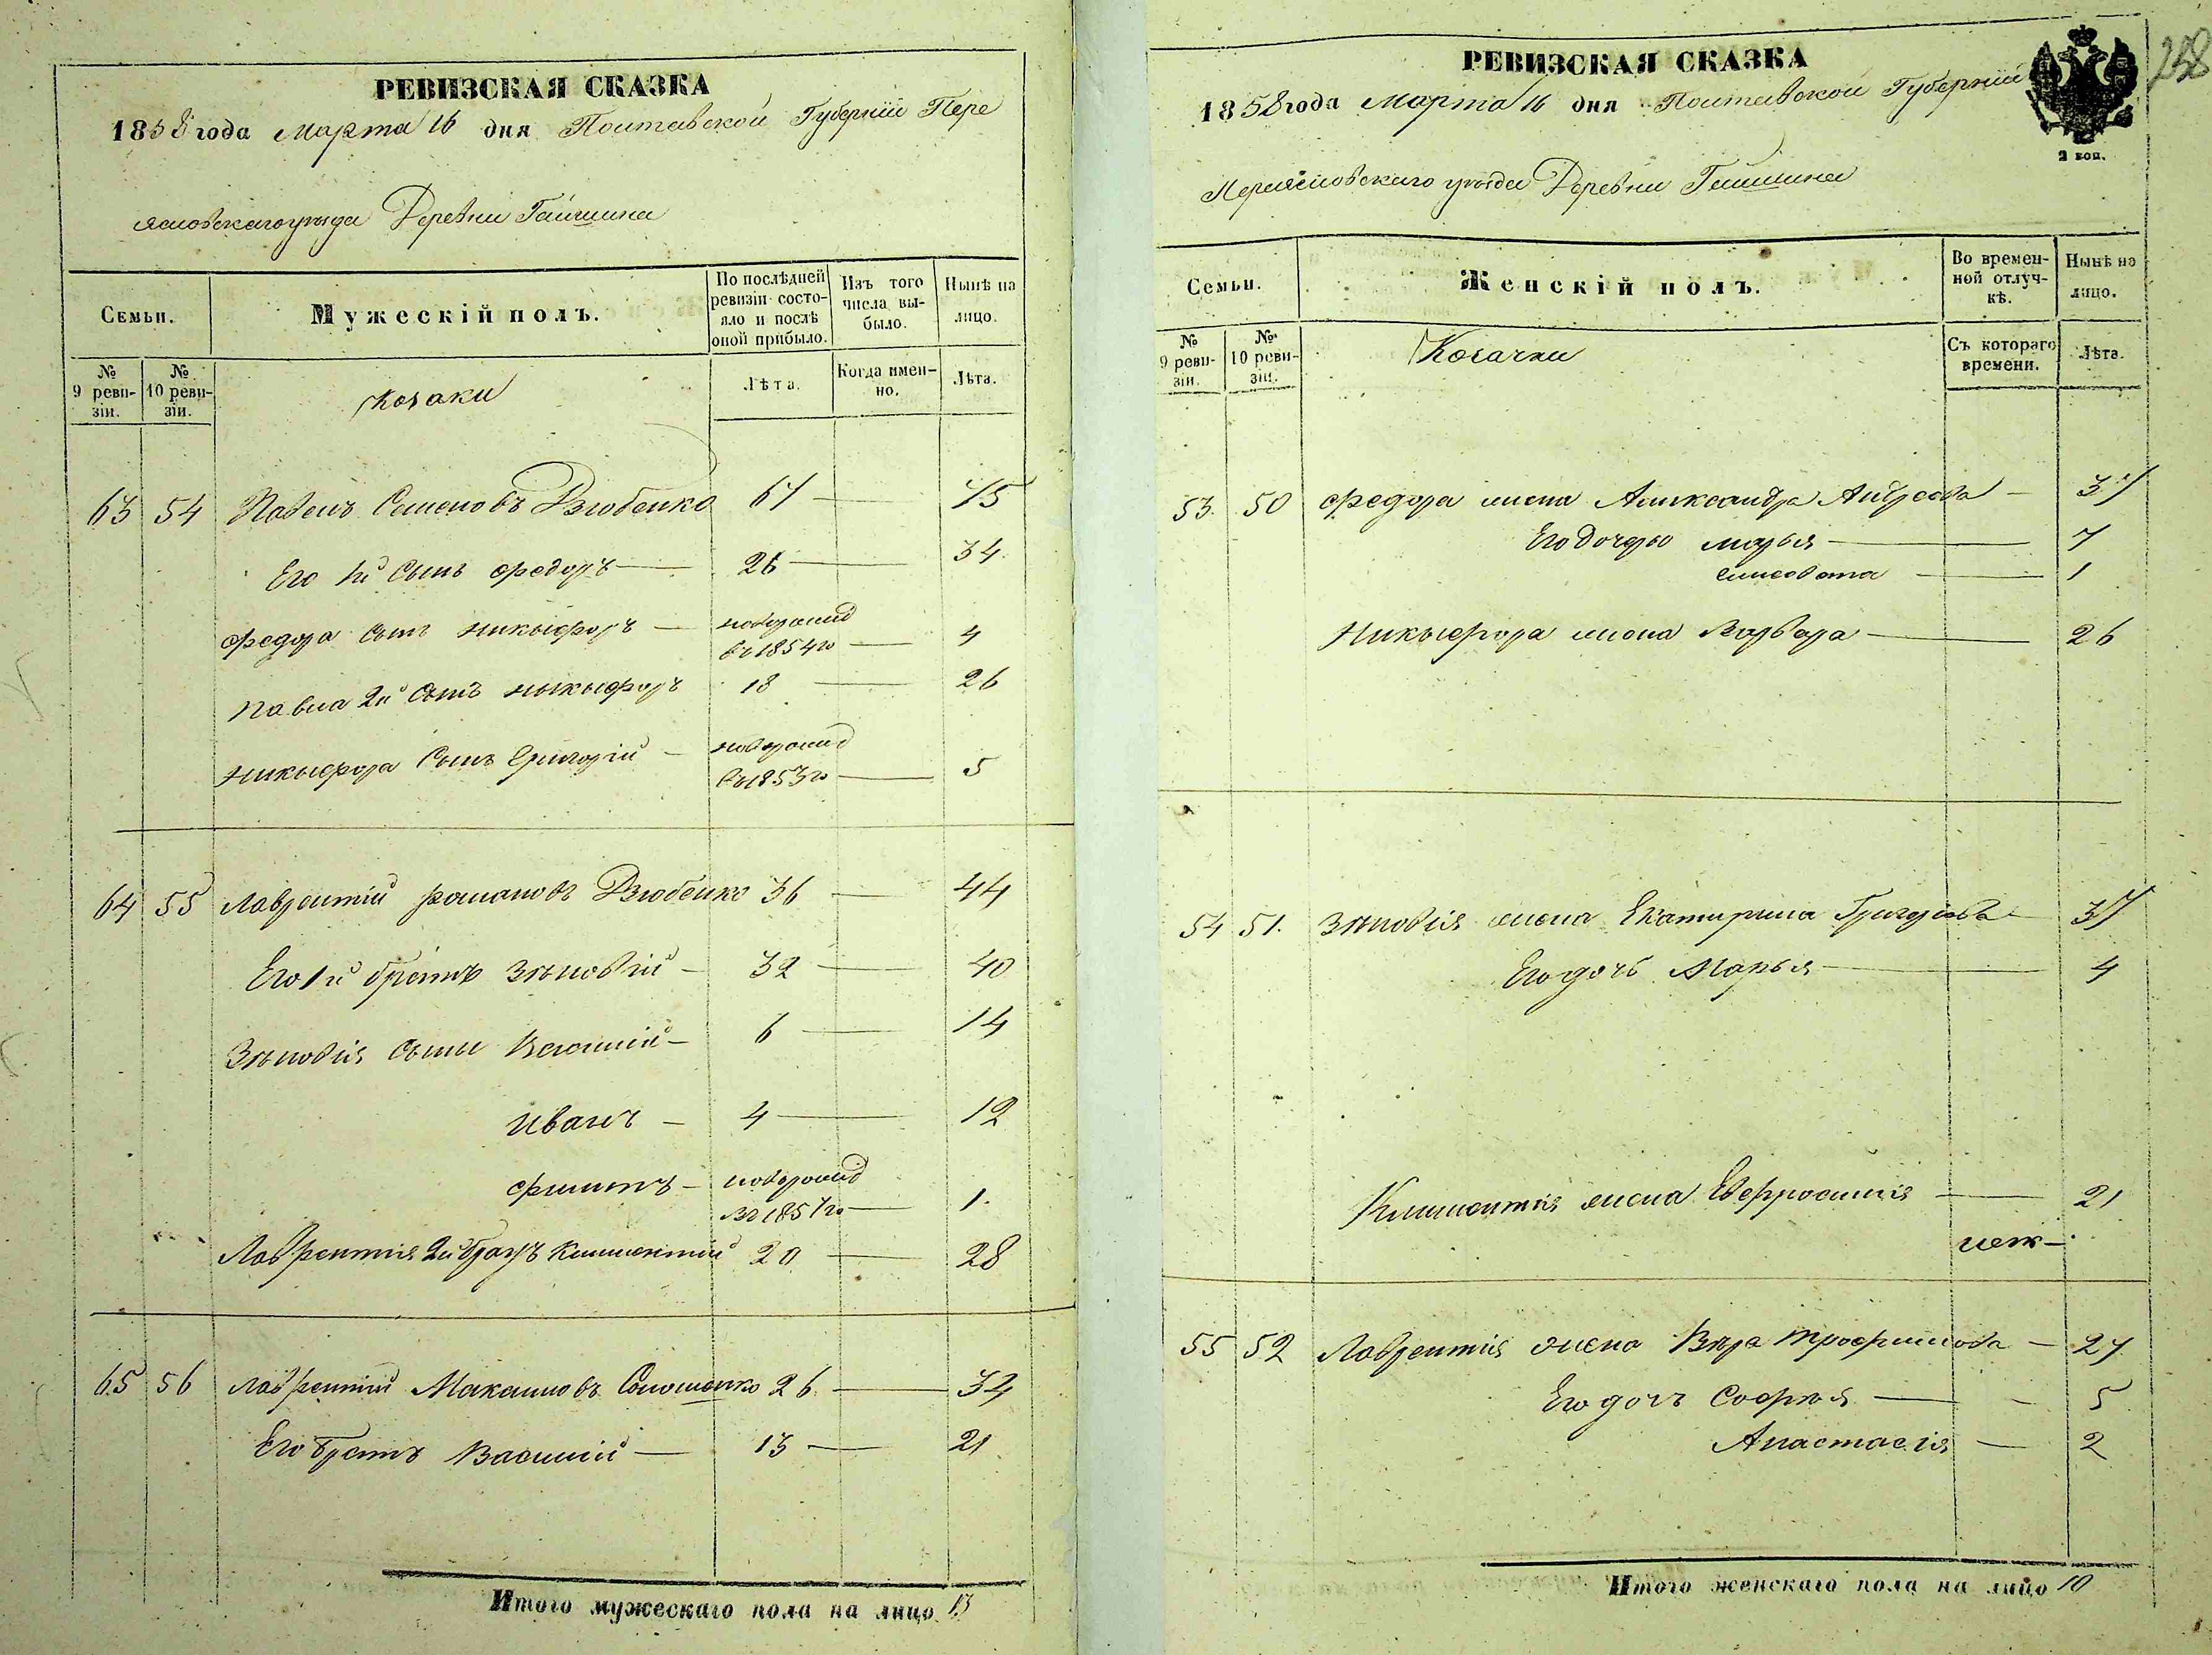 РЕВИЗСКАЯ СКАЗКА
1858 года Марта 16 дня Полтавской Губерніи Пере
яславскаго уезда Деревни Гайшина
Семьи.
Мужескій полъ.
По послѣдней ревизіи состояло и послѣ оной прибыло.
Изъ того числа выбыло.
Нынѣ на лицо.
№ 9 ревизіи.
№ 10 ревизіи.
Козаки
Лѣта.
Когда именно.
Лѣта.
63 54 Павелъ Семеновъ Дзюбенко 67 — 75
Его 1й сынъ Федоръ — 26 — 34
Федора сынъ Никыфоръ — новорожд въ 1854го — 4
Павла 2й сынъ Ныкыфоръ 18 — 26
Никыфора сынъ Григорій — новорожд въ 1853го — 5
64 55 Лаврентій Романовъ Дзюбенко 36 — 44
Его 1й братъ Зѣновій — 32 — 40
Зѣновія сыны Василій — 6 — 14
Иванъ — 4 — 12
Филипъ — новорожд въ 1857го — 1.
Лаврентія 2й братъ Климентій 20 — 28
65 56 Лаврентій Максимовъ 26 — 34
Его братъ Василій — 13 — 21
Итого мужескаго пола на лицо 13
РЕВИЗСКАЯ СКАЗКА
258
1858 года Марта 16 дня Полтавской Губерніи
2 коп.
Переяславскаго уезда Деревни Гайшина
Семьи.
Женскій полъ.
Во временной отлучкѣ.
Нынѣ на лицо.
№ 9 ревизіи.
№ 10 ревизіи.
Козачки
Съ котораго времени.
Лѣта.
53. 50 Федора жена Александра Андреева — 37
Его дочери Марья — 7
Елисавета — 1
Никыфора жена Варвара — 26
54 51. Зѣновія жена Екатирина Григорьева — 37
Его дочь Марья — 4
Климентія жена Евфросинія — 21
55 52 Лаврентія жена Вѣра Трофимова — 27
Его дочь Софія — 5
Анастасія — 2
Итого женскаго пола на лицо 10